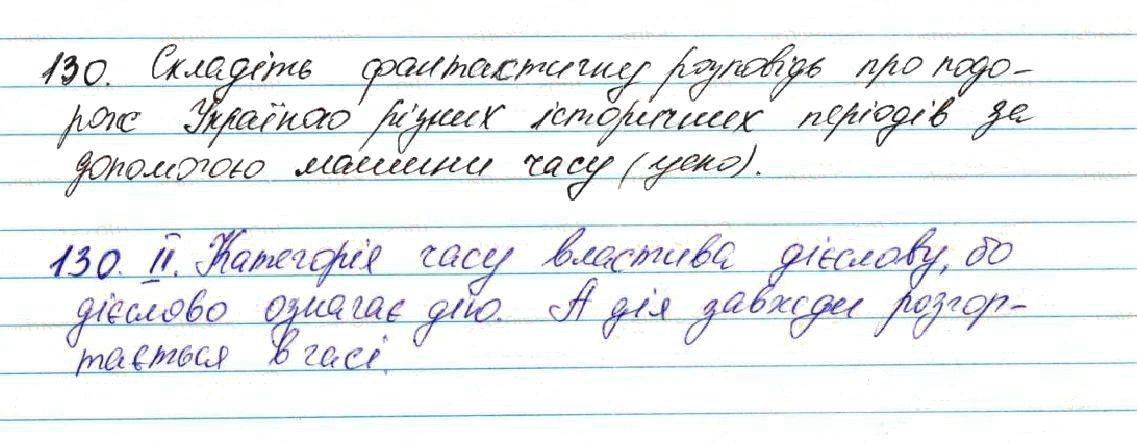 130. Складіть фантастичну розповідь про подо-
рож Україною різних історичних періодів за
допомогою машини часу (усно).
130. II. Категорія часу властива дієслову, бо
дієслово означає дію. А дія завжди розгор-
тається в часі.